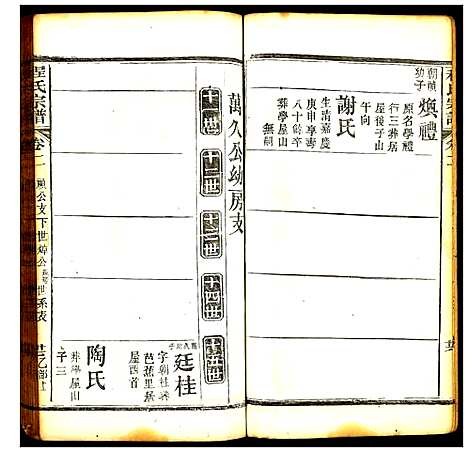 程氏宗譜
卷二
朝楨幼子
煥禮
原名學禮
行三葬居
屋後子山
午向
謝氏
生清嘉慶
庚申享壽
八十餘卒
葬學屋山
無嗣
萬久公幼房支
十一世
十二世
十三世
十四世
十五世
廷桂
字朝桂葬
芭蕉里居
屋西首
陶氏
葬學屋山
子三
程氏宗譜
卷二